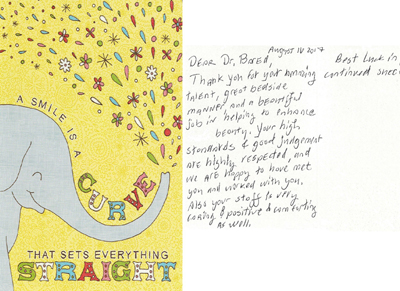 A SMILE IS A
CURVE
THAT SETS EVERYTHING
STRAIGHT
August 2017
Dear Dr.
Thank you for your
talent, great bedside
manner and a beautiful
job in helping to enhance
beauty. Your high
standards & good judgement
are highly respected, and
we are happy to have met
you and worked with you.
Also your staff is very
caring & positive & comforting
as well.
Best Luck in
continued